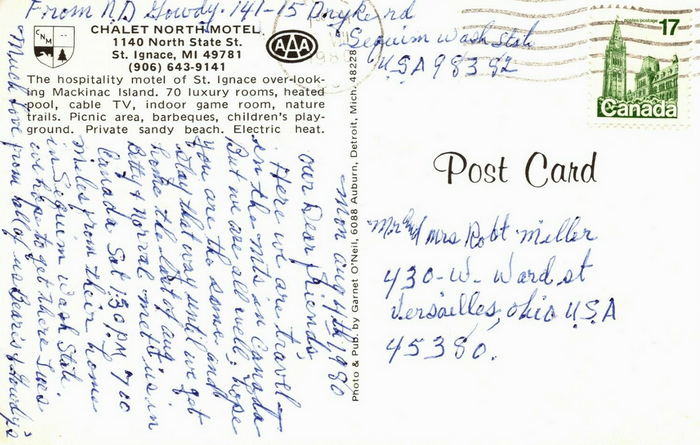 From N.D Gowdy. 141-15 Dryke rd
Sequim Wash State
USA 98382
CNM
CHALET NORTH MOTEL
1140 North State St.
St. Ignace, MI 49781
(906) 643-9141
AAA
The hospitality motel of St. Ignace over-look-
ing Mackinac Island. 70 luxury rooms, heated
pool, cable TV, indoor game room, nature
trails. Picnic area, barbeques, children's play-
ground. Private sandy beach. Electric heat.
Photo & Pub. by Garnet O'Neil, 6088 Auburn, Detroit, Mich. 48228
postes postage
17
Canada
Post Card
Mr and Mrs Robt Miller
430-W- Ward st
Versailles, Ohio USA
45380.
Mon aug 4th, 1980
our Dear friends,
Here we are travel-
in the mts in Canada
But we are all well, hope
you are the same and
stay that way until we get
home the last of aug.
Bette & norval met us in
Canada Sat 1:30 PM 700
miles from their home
in Sequim Wash State.
we hope to get there Tues
Much Love from all of us Daris & Gowdy's